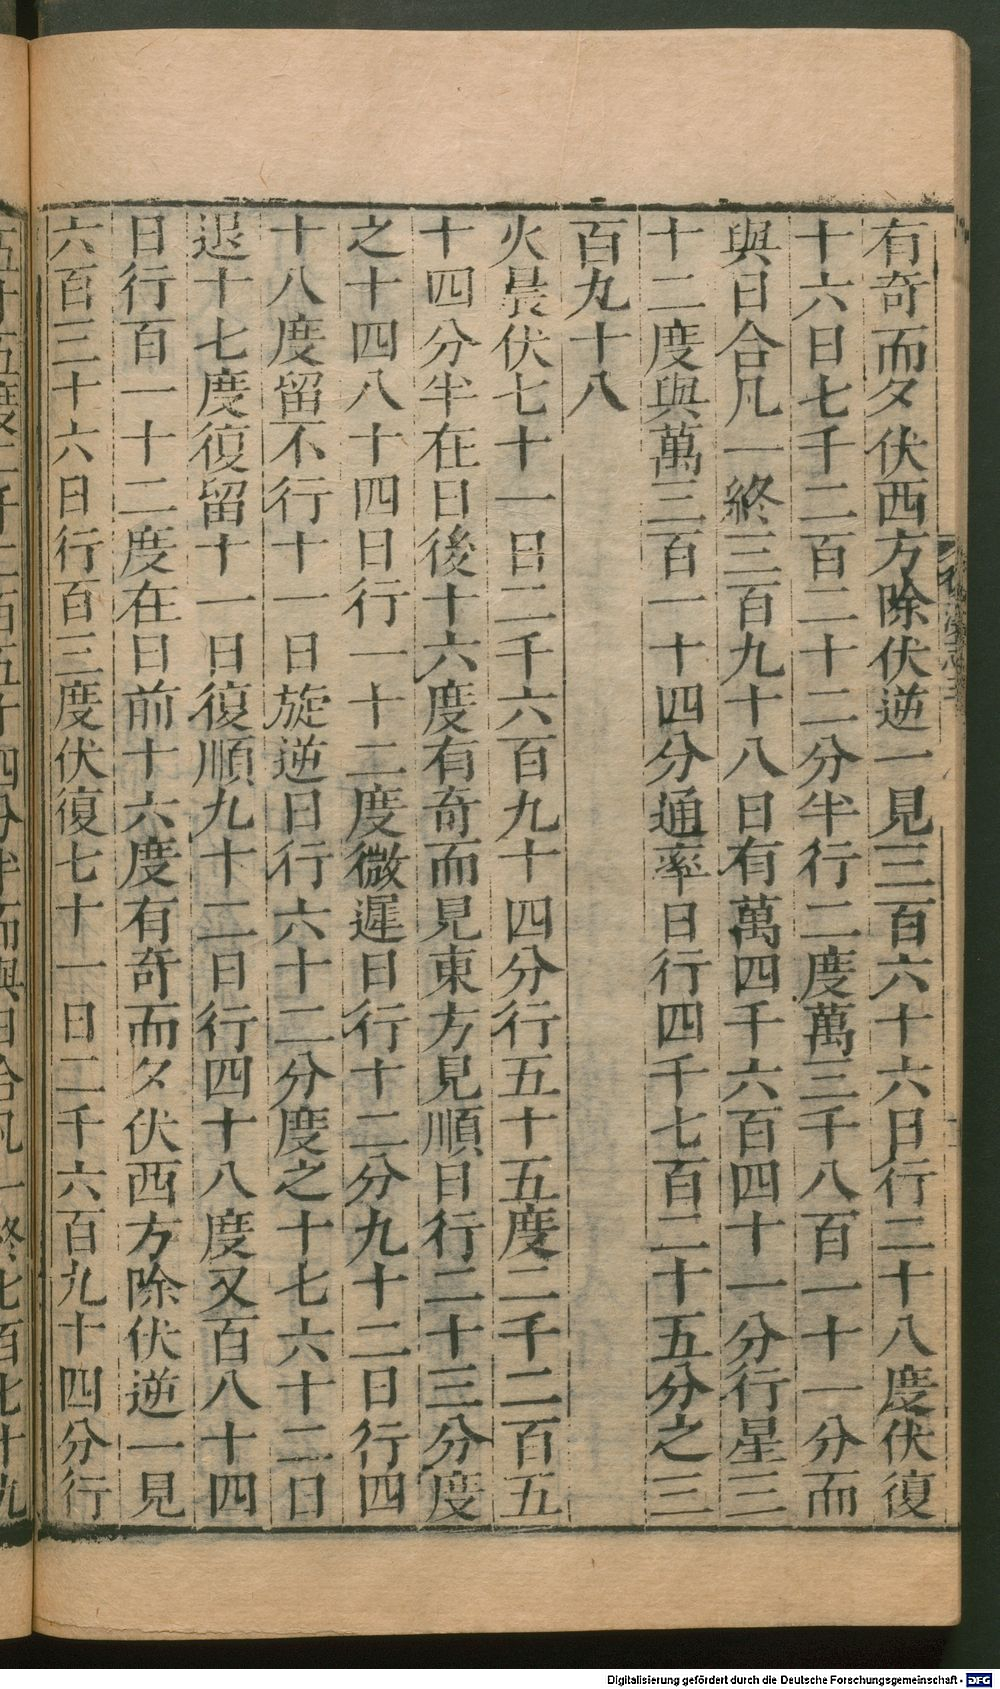 有奇而夕伏西方除伏逆一見三百六十六日行二十八度伏復
十六日七千二百二十二分半行二度萬三千八百一十一分而
與日合凡一終三百九十八日有萬四千六百四十一分行星三
十二度與萬三百一十四分通率日行四千七百二十五分之三
百九十八
火晨伏七十一日二千六百九十四分行五十五度二千二百五
十四分半在日後十六度有奇而見東方見順日行二十三分度
之十四八十四日行一十二度微遲日行十二分九十二日行四
十八度留不行十一日旋逆日行六十二分度之十七六十二日
退十七度復留十一日復順九十二日行四十八度又百八十四
日行百一十二度在日前十六度有奇而夕伏西方除伏逆一見
六百三十六日行百三度伏復七十一日二千六百九十四分行
Digitalisierung gefördert durch die Deutsche Forschungsgemeinschaft - DFG